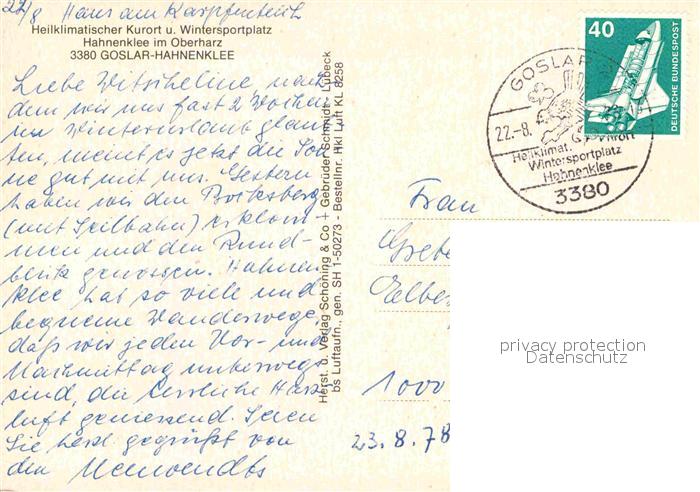 22/8 Haus am Karpfenteich
Heilklimatischer Kurort u. Wintersportplatz
Hahnenklee im Oberharz
3380 GOSLAR-HAHNENKLEE
Liebe nach
dem wir uns fast 2 Wochen
im Winterurlaub glaub
ten, meint es jetzt die Son
ne gut mit uns. Gestern
haben wir den Bocksberg
(mit Seilbahn) erklom
men und den Rund-
blick genossen. Hahnen
klee hat so viele und
bequeme Wanderwege,
daß wir jeden Vor- und
Nachmittag unterwegs
sind, die herrliche Harz
luft geniessend. Seien
Sie herzl. gegrüßt von
den
Herst. u. Verlag Schöning & Co + Gebrüder Schmidt - Lübeck
bs Luftaufn., gen. SH 1-50273 - Bestellnr. Hkl Luft KL 8258
40
DEUTSCHE BUNDESPOST
GOSLAR
22.-8.
Heilklimat. Kurort
Wintersportplatz
Hahnenklee
3380
Frau
Grete
Elbe
1000
23.8.78
privacy protection
Datenschutz